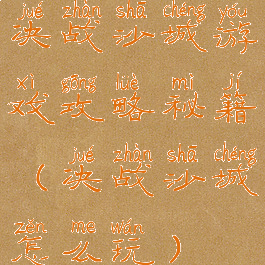 jué zhàn shā chéng yóu
决战沙城游
xì gōng lüè mì jí
戏攻略秘籍
jué zhàn shā chéng
（决战沙城
zěn me wán
怎么玩）